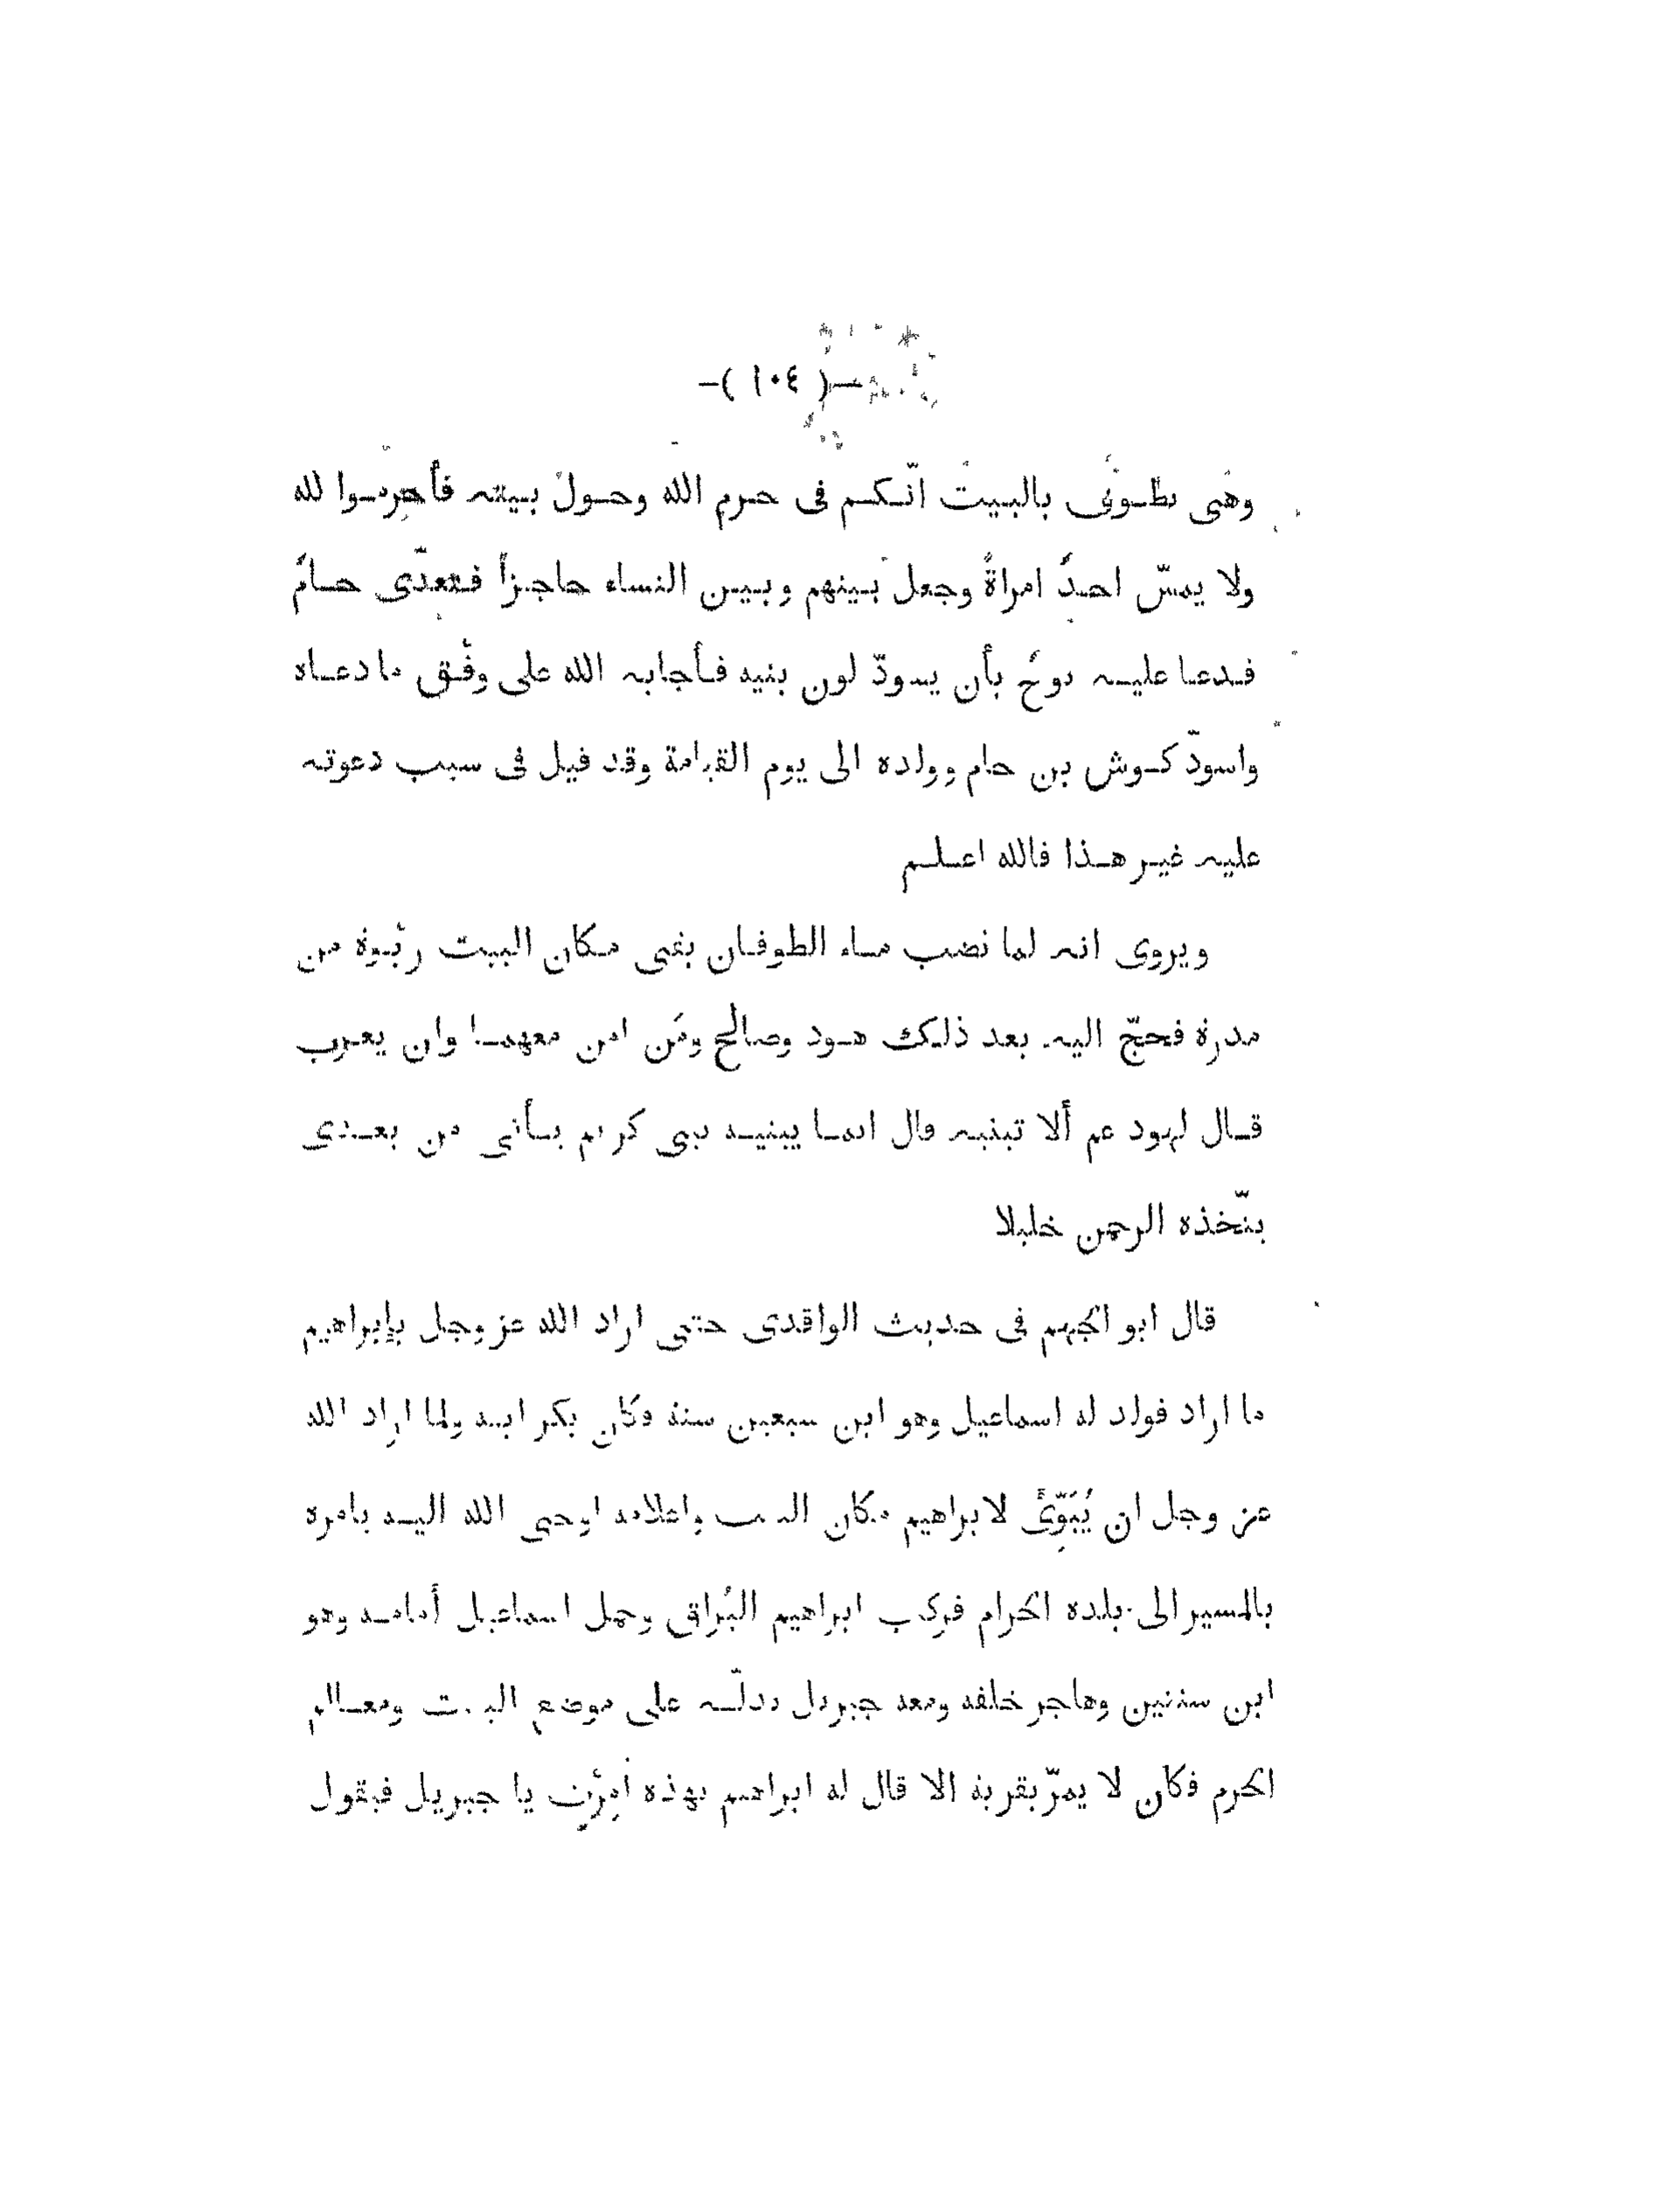 —( ١٠٤ )—
وهى تطوف بالبيت انّكم فى حرم الله وحول بيته فأحرِموا لله
ولا يمسّ احدٌ امراةً وجعل بينهم وبين النساء حاجزاً فتعدّى حامٌ
فدعا عليه نوحٌ بأن يسودّ لون بنيه فأجابه الله على وفْق ما دعاه
واسودّ كوش بن حام وولده الى يوم القيامة وقد قيل فى سبب دعوته
عليه غير هذا فالله اعلم
ويروى انه لما نضب ماء الطوفان بقى مكان البيت ربْوة من
مدرة فحجّ اليه بعد ذلك هود وصالح ومَن امن معهما وان يعرب
قال لهود عم ألا تبنيه قال انما يبنيه نبى كريم يأتى من بعدى
يتّخذه الرحمن خليلا
قال ابو الجهم فى حديث الواقدى حتى اراد الله عز وجل بإبراهيم
ما اراد فولد له اسماعيل وهو ابن سبعين سنة فكان بكر ابيه ولما اراد الله
عز وجل ان يُبَوِّئَ لابراهيم مكان البيت واعلامه اوحى الله اليه بامره
بالمسير الى بلده الحرام فركب ابراهيم البُراق وحمل اسماعيل أمامه وهو
ابن سنتين وهاجر خلفه ومعه جبريل يدلّه على موضع البيت ومعالم
الحرم فكان لا يمرّ بقرية الا قال له ابراهيم بهذه أمِرْت يا جبريل فيقول